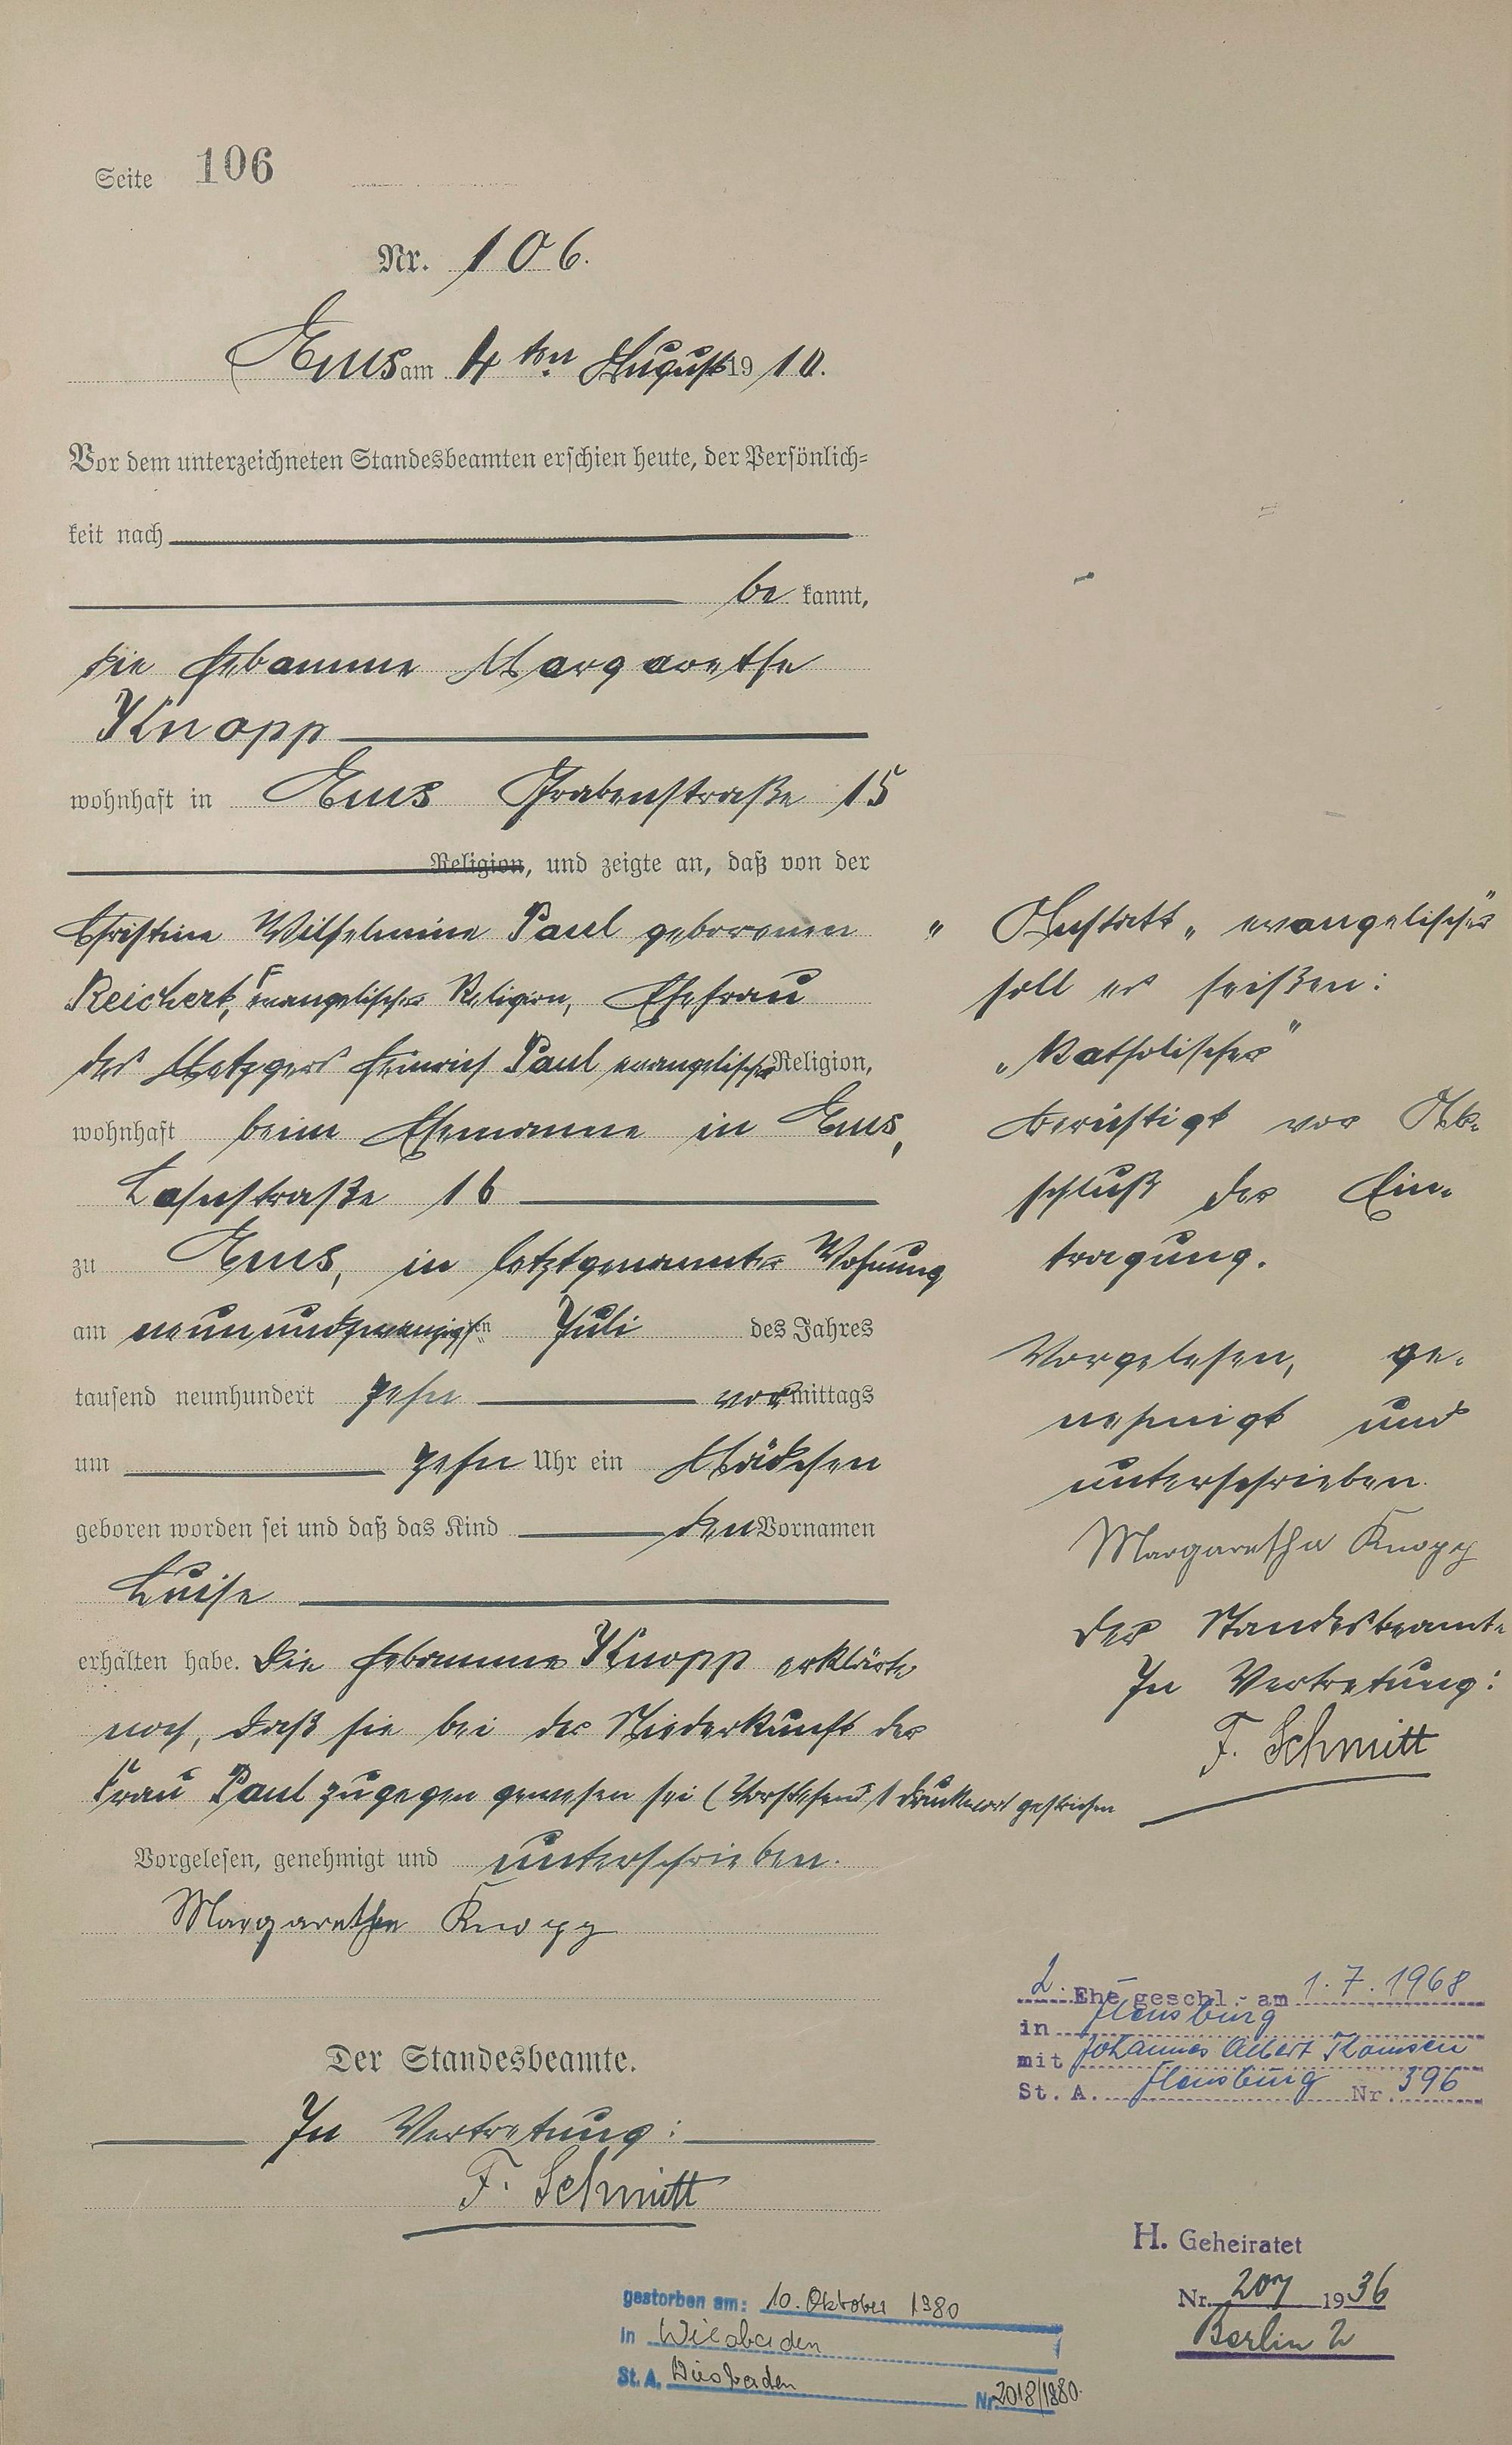 Seite 106
Nr. 106.
Ems am 4ten August 1910.
Vor dem unterzeichneten Standesbeamten erschien heute, der Persönlich=
keit nach
be kannt,
die Hebamme Margarethe
Knopp
wohnhaft in Ems Grabenstraße 15
Religion, und zeigte an, daß von der
Christine Wilhelmine Paul geborenen
Reichert, evangelischer Religion, Ehefrau
des Metzgers Heinrich Paul evangelischer Religion,
wohnhaft beim Ehemanne in Ems,
Lahnstraße 16
zu Ems, in letztgenannter Wohnung
am neunundzwanzigsten Juli des Jahres
tausend neunhundert zehn vormittags
um zehn Uhr ein Mädchen
geboren worden sei und daß das Kind den Vornamen
Luise
erhalten habe. Die Hebamme Knopp erklärte
noch, daß sie bei der Niederkunft der
Frau Paul zugegen gewesen sei (Vorstehend 1 Druckwort gestrichen
Vorgelesen, genehmigt und unterschrieben.
Margarethe Knopp
Der Standesbeamte.
In Vertretung:
F. Schmitt
" Anstatt „evangelischer"
soll es heißen:
„Katholischer"
berichtigt vor Ab-
schluß der Ein-
tragung.
Vorgelesen, ge-
nehmigt und
unterschrieben.
Margarethe Knopp
Der Standesbeamte
In Vertretung:
F. Schmitt
2. Ehe geschl. am 1.7.1968
in Flensburg
mit Johannes Albert Thomsen
St. A. Flensburg Nr. 396
H. Geheiratet
Nr. 207 1936
Berlin 2
gestorben am: 10. Oktober 1980
in Wiesbaden
St. A. Wiesbaden Nr. 2018/1980.